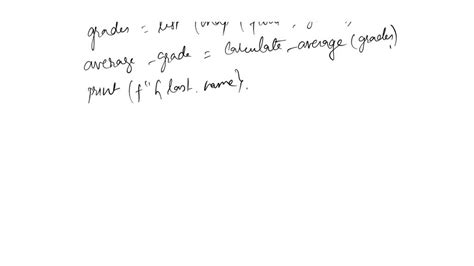 grades = list (map (float,
average_grade = calculate_average (grades)
print (f"{ last_name}.